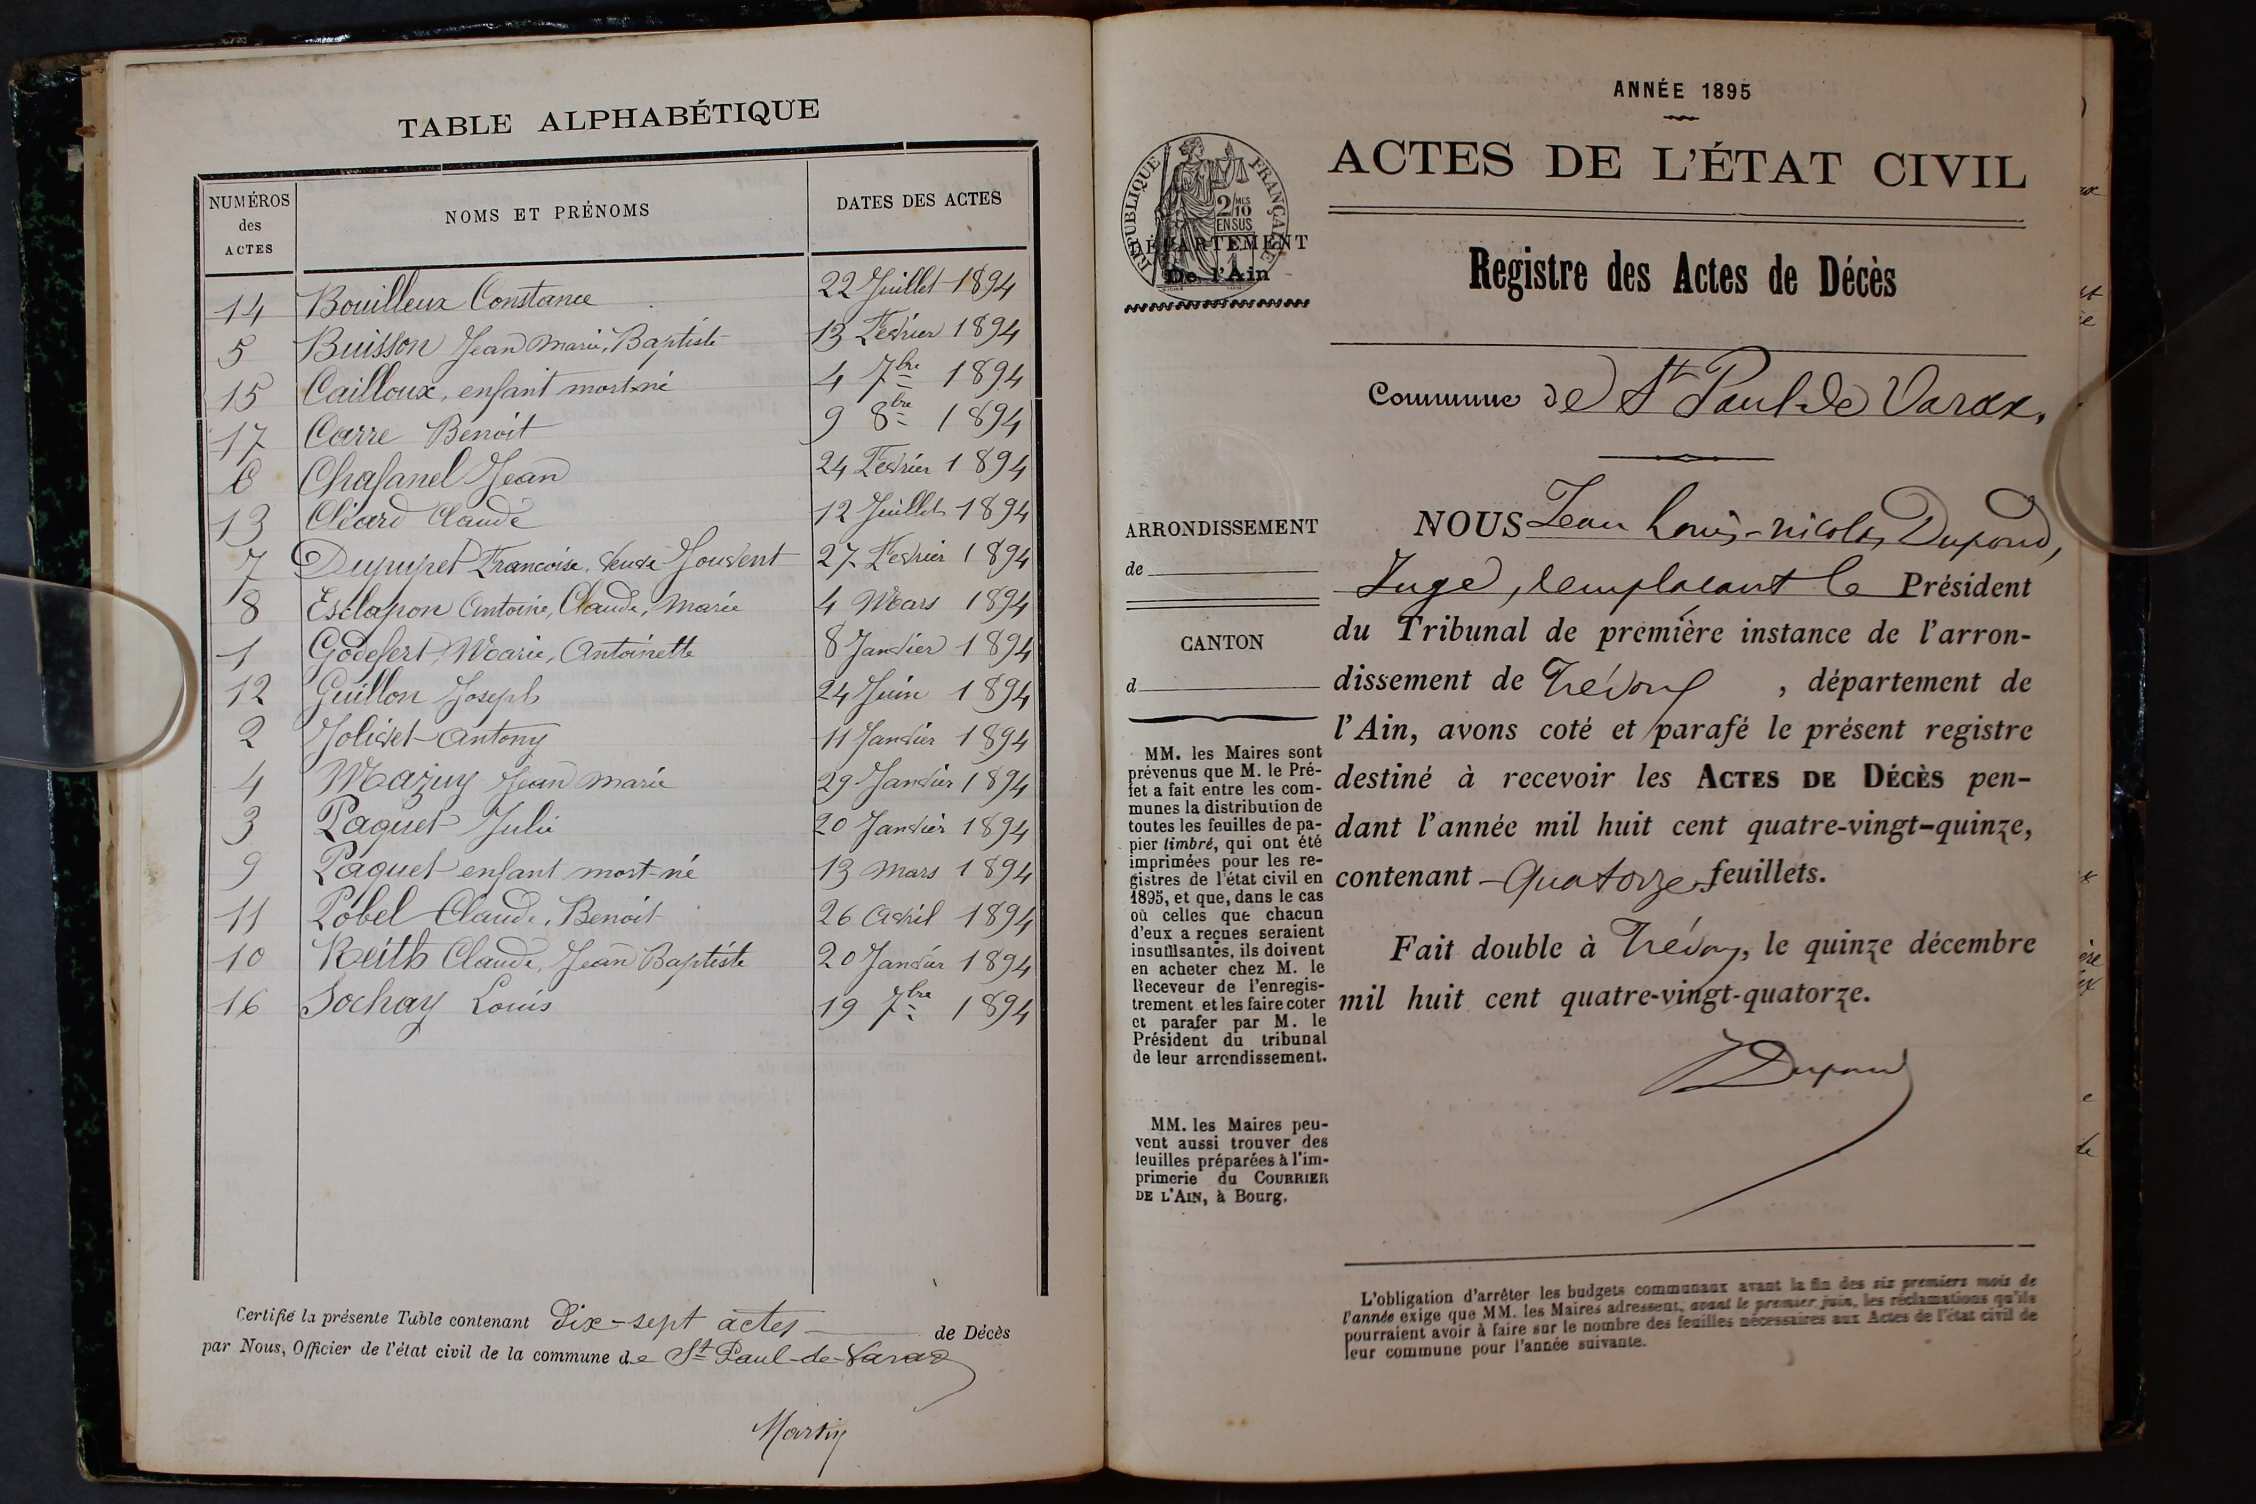 TABLE ALPHABÉTIQUE
NUMÉROS des ACTES NOMS ET PRÉNOMS DATES DES ACTES
14 Bouilleux Constance 22 Juillet 1894
5 Buisson Jean Marie, Baptiste 13 Fevrier 1894
15 Cailloux, enfant mort-né 4 7bre 1894
17 Carre Benoit 9 8bre 1894
6 Chafanel Jean 24 Fevrier 1894
13 Cléard Claude 12 Juillet 1894
7 Dupupet Francoise, veuve Jouvent 27 Fevrier 1894
8 Esclapon Antoine, Claude, Marie 4 Mars 1894
1 Godefert, Marie, Antoinette 8 Janvier 1894
12 Guillon Joseph 24 Juin 1894
2 Jolivet Antony 11 Janvier 1894
4 Mazuy Jean Marie 29 Janvier 1894
3 Paquet Julie 20 Janvier 1894
9 Paquet enfant mort-né 13 Mars 1894
11 Pobel Claude, Benoit 26 Avril 1894
10 Reith Claude, Jean Baptiste 20 Janvier 1894
16 Sochay Louis 19 7bre 1894
Certifié la présente Table contenant dix-sept actes de Décès
par Nous, Officier de l'état civil de la commune de St Paul-de-Varax
Martin
ANNÉE 1895
ACTES DE L'ÉTAT CIVIL
RÉPUBLIQUE FRANÇAISE
2/10 MES
EN SUS
DÉPARTEMENT
De l'Ain
Registre des Actes de Décès
Commune de St Paul de Varax.
ARRONDISSEMENT
de
CANTON
d
MM. les Maires sont
prévenus que M. le Pré-
fet a fait entre les com-
munes la distribution de
toutes les feuilles de pa-
pier timbré, qui ont été
imprimées pour les re-
gistres de l'état civil en
1895, et que, dans le cas
où celles que chacun
d'eux a reçues seraient
insuffisantes, ils doivent
en acheter chez M. le
Receveur de l'enregis-
trement et les faire coter
et parafer par M. le
Président du tribunal
de leur arrondissement.
MM. les Maires peu-
vent aussi trouver des
feuilles préparées à l'im-
primerie du COURRIER
DE L'AIN, à Bourg.
NOUS Jean Louis-nicolas Dupond,
Juge, remplacant le Président
du Tribunal de première instance de l'arron-
dissement de Trévoux, département de
l'Ain, avons coté et parafé le présent registre
destiné à recevoir les ACTES DE DÉCÈS pen-
dant l'année mil huit cent quatre-vingt-quinze,
contenant Quatorze feuillets.
Fait double à Trévoux, le quinze décembre
mil huit cent quatre-vingt-quatorze.
Dupond
L'obligation d'arrêter les budgets communaux avant la fin des six premiers mois de
l'année exige que MM. les Maires adressent, avant le premier juin, les réclamations qu'ils
pourraient avoir à faire sur le nombre des feuilles nécessaires aux Actes de l'état civil de
leur commune pour l'année suivante.